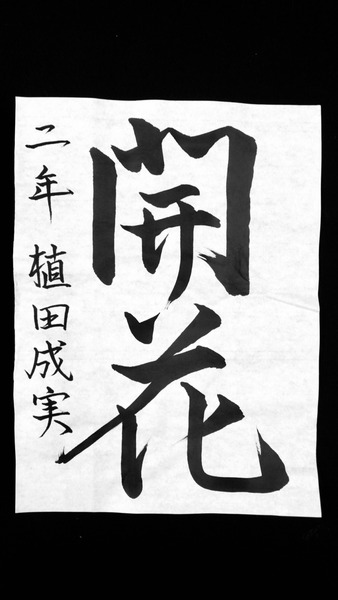 開花
二年 植田成実